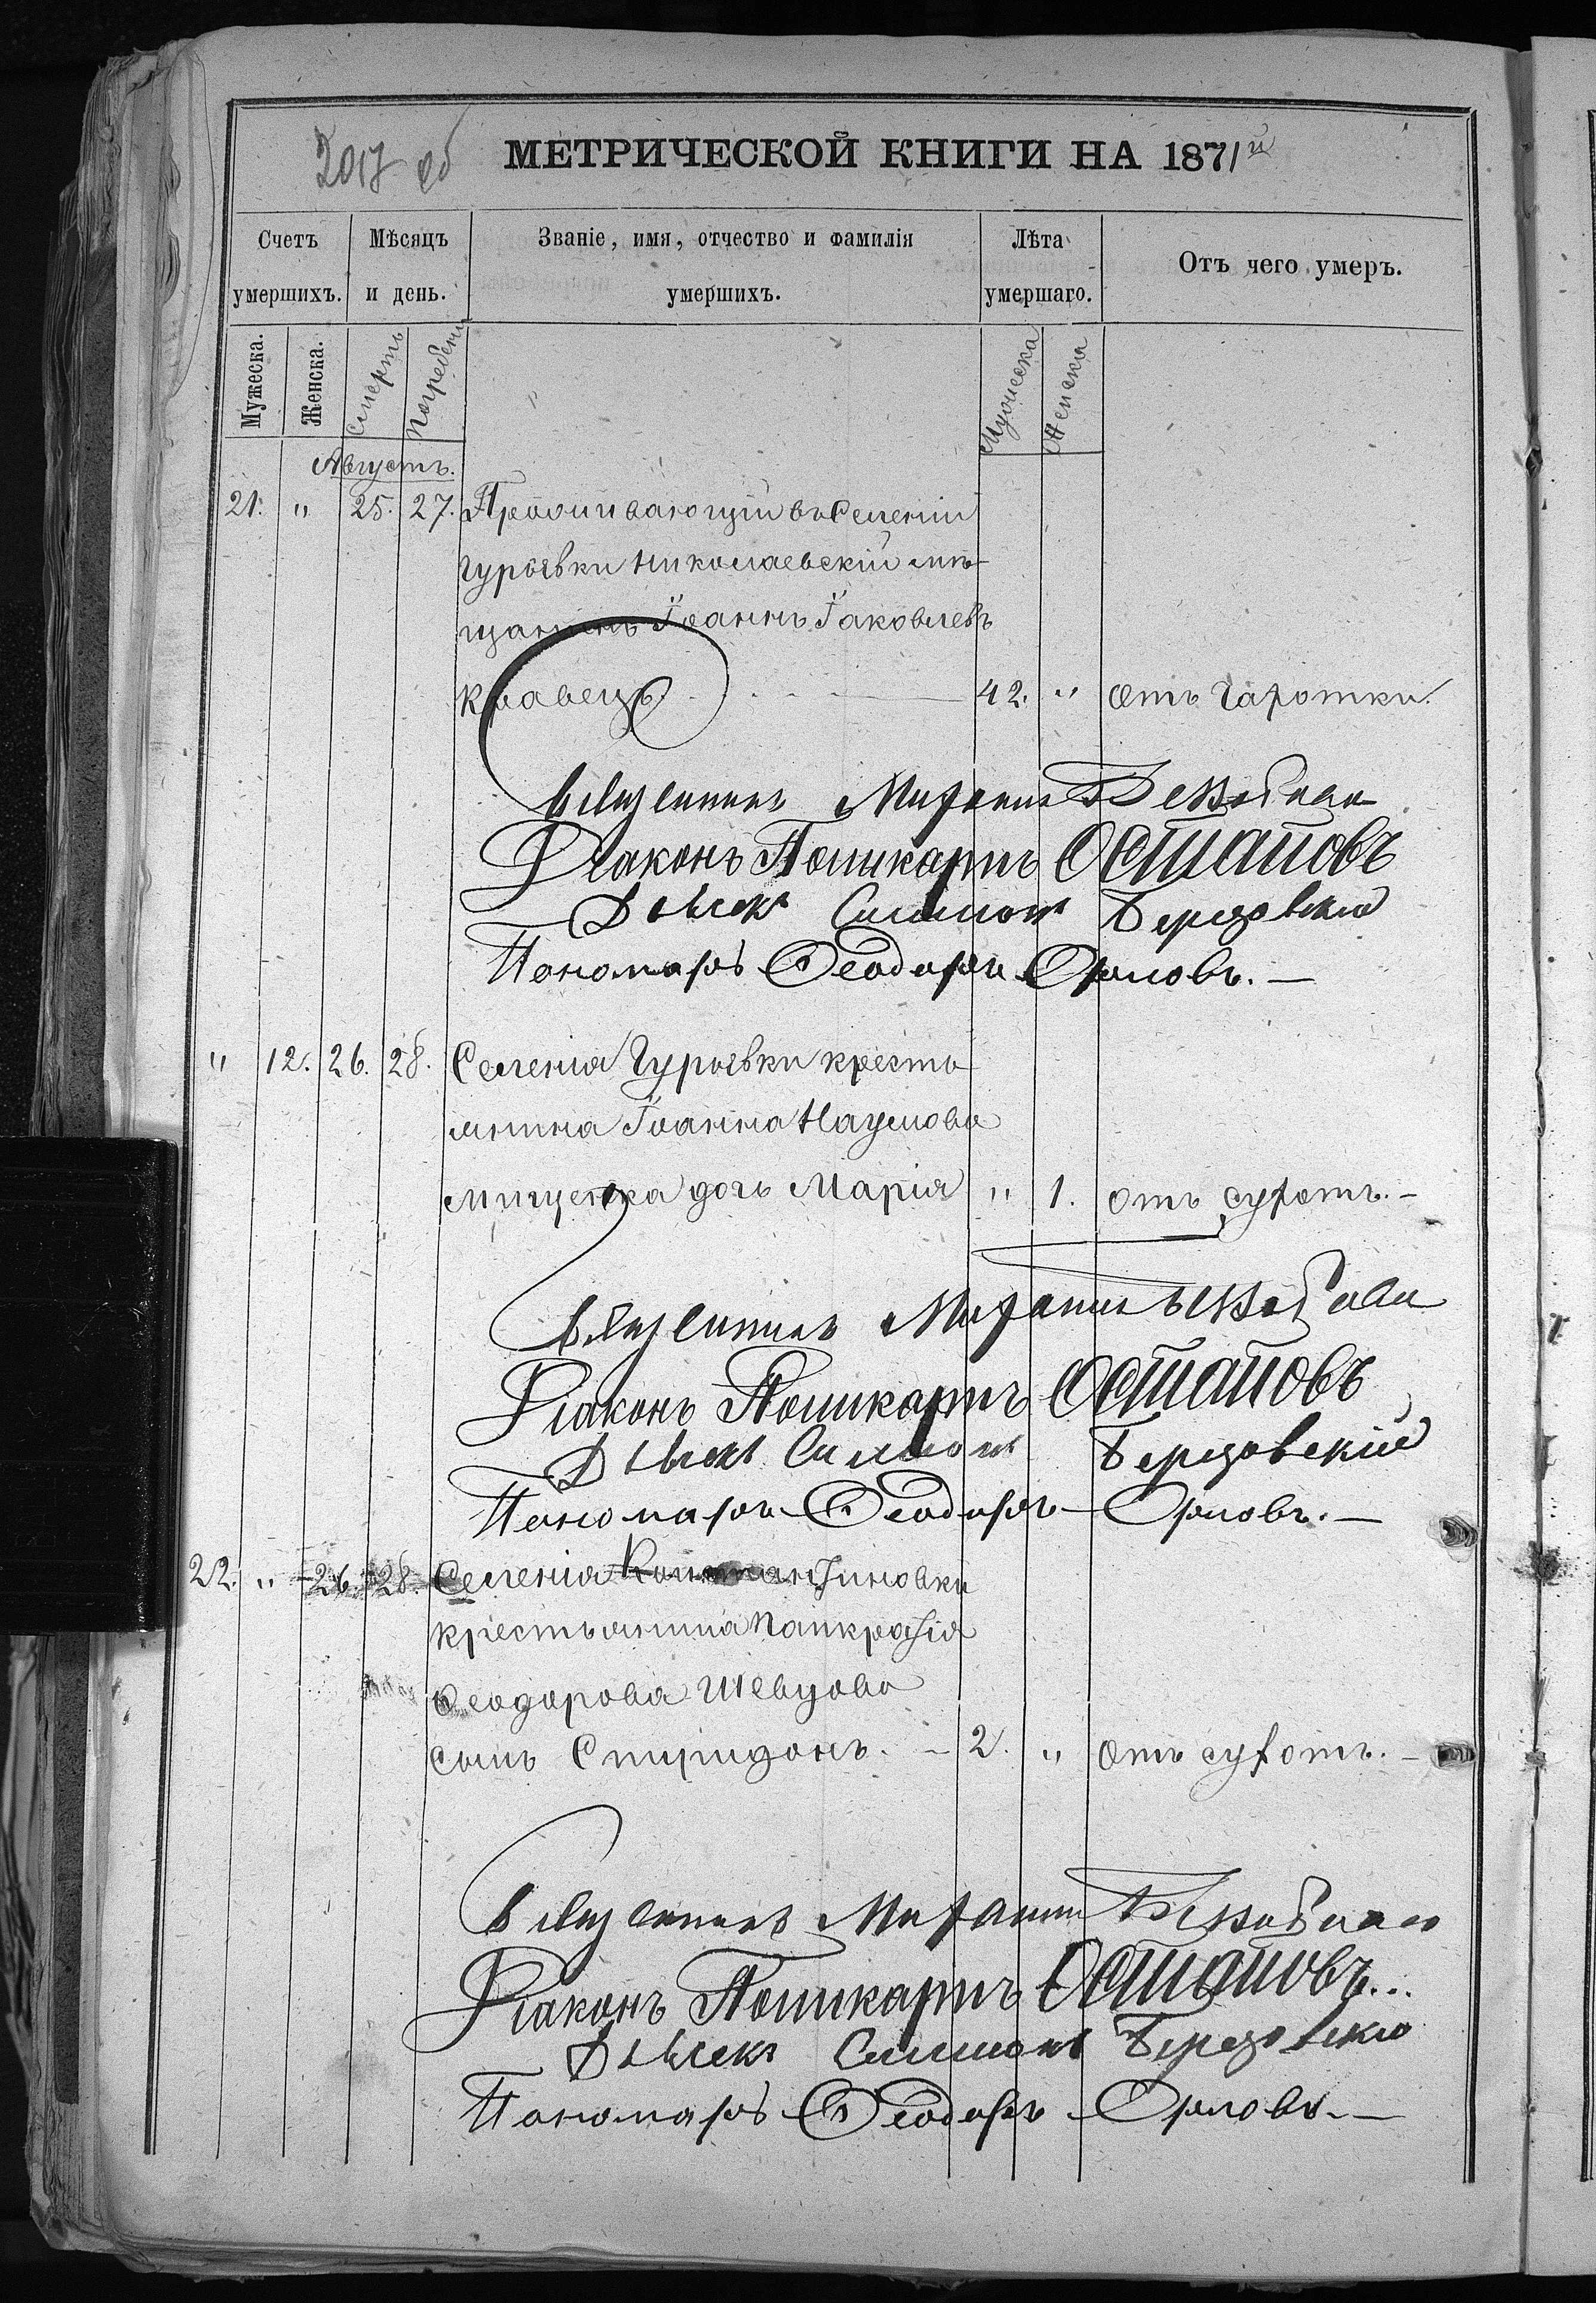 2017 об
МЕТРИЧЕСКОЙ КНИГИ НА 1871й
Счетъ умершихъ.
Мѣсяцъ и день.
Званіе, имя, отчество и фамилія умершихъ.
Лѣта умершаго.
Отъ чего умеръ.
Мужеска. Женска. Смерть Погребенія Мужеска Женска
Августъ.
21. " 25. 27. Проживающій въ Селеніи
Гурьевки Николаевскій мѣ-
щанинъ Іоаннъ Іаковлевъ
Кравецъ. 42. " Отъ Чахотки.
Священникъ
Діаконъ Поликарпъ Остаповъ
Дьячекъ Симеонъ Березовскій
Пономарь Ѳеодоръ Орловъ.
" 12. 26. 28. Селенія Гурьевки кресть
янина Іоанна Наумова
Мищенка дочь Марія " 1. отъ сухотъ.
Священникъ
Діаконъ Поликарпъ Остаповъ
Дьячекъ Симеонъ Березовскій
Пономарь Ѳеодоръ Орловъ.
22. " 26. 28. Селенія Константиновки
крестьянина Панкратія
Ѳеодорова Шевцова
сынъ Спиридонъ. 2. " Отъ сухотъ.
Священникъ
Діаконъ Поликарпъ Остаповъ...
Дьячекъ Симеонъ Березовскій
Пономарь Ѳеодоръ Орловъ.